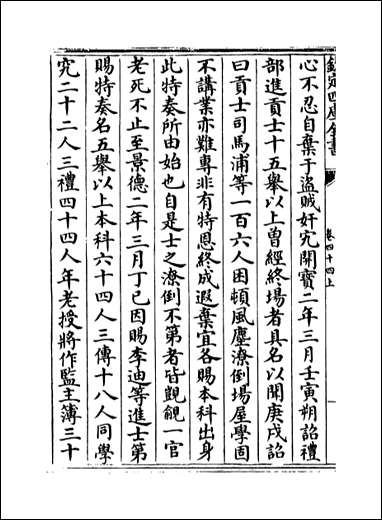 欽定四庫全書
卷四十四上
心不忍自棄于盜賊奸宄開寶二年三月壬寅朔詔禮
部進貢士十五舉以上曽經終場者具名以聞庚戌詔
曰貢士司馬浦等一百六人困頓風塵潦倒場屋學固
不講業亦難專非有特恩終成遐棄宜各賜本科出身
此特奏所由始也自是士之潦倒不第者皆覬覦一官
老死不止至景德二年三月丁巳因賜李迪等進士第
賜特奏名五舉以上本科六十四人三傳十八人同學
究二十二人三禮四十四人年老授將作監主簿三十